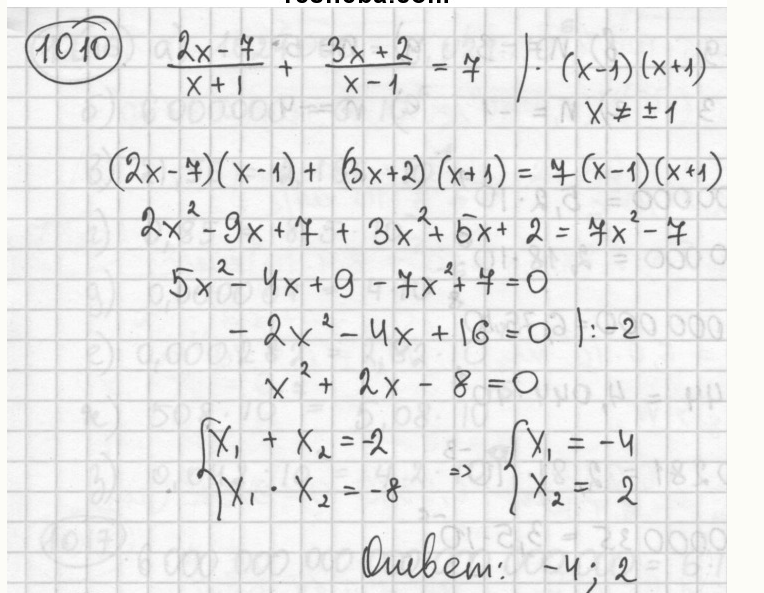 1010 (2x-7)/(x+1) + (3x+2)/(x-1) = 7 | · (x-1)(x+1)
x ≠ ±1
(2x-7)(x-1) + (3x+2)(x+1) = 7(x-1)(x+1)
2x² - 9x + 7 + 3x² + 5x + 2 = 7x² - 7
5x² - 4x + 9 - 7x² + 7 = 0
- 2x² - 4x + 16 = 0 | : -2
x² + 2x - 8 = 0
{ x₁ + x₂ = -2
x₁ · x₂ = -8 => { x₁ = -4
x₂ = 2
Ответ: -4; 2